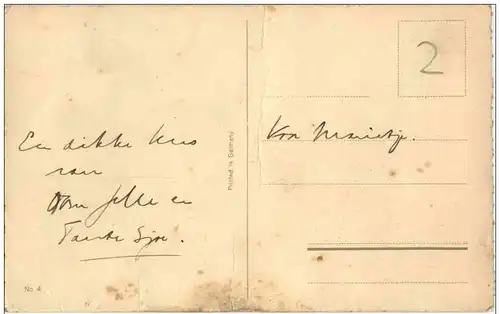 Een dikke kus
van
Oom Jelle en
Tante Sjoe.
No 4
Printed in Germany
2
Voor Marietje.